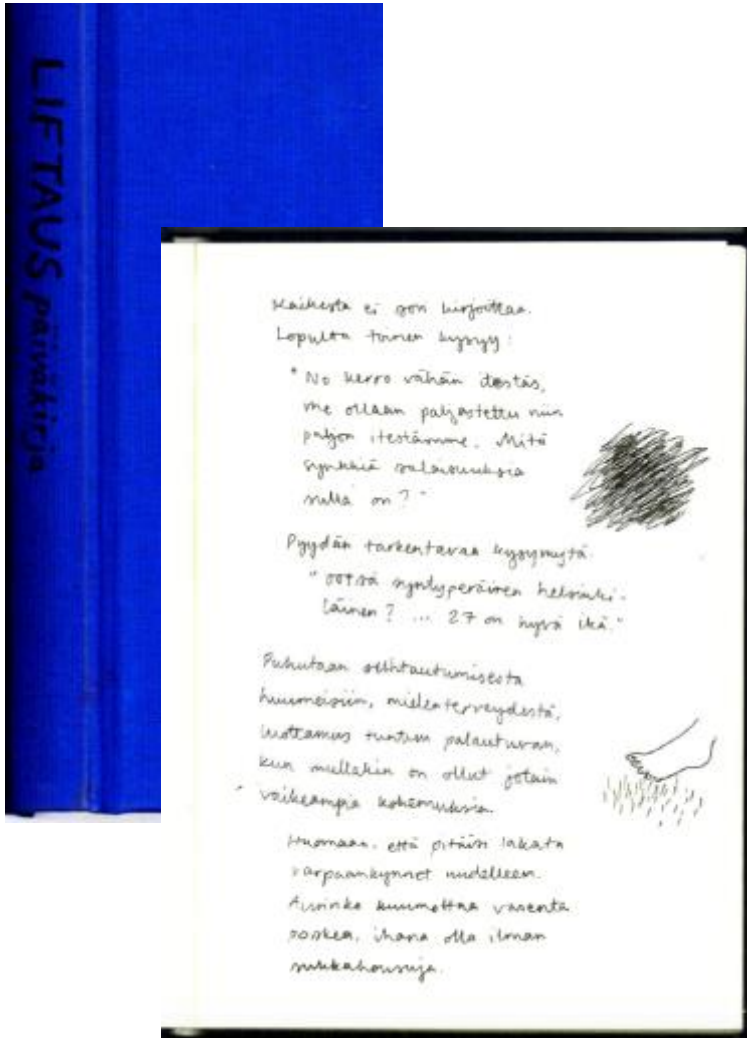 LIFTAUS päiväkirja
Kaikesta ei voi kirjoittaa.
Lopulta toinen kysyy:
"No kerro vähän itestäs,
me ollaan paljastettu niin
paljon itestämme. Mitä
synkkiä salaisuuksia
sulla on?"
Pyydän tarkentavaa kysymystä.
"ootsä syntyperäinen helsinki-
läinen? ... 27 on hyvä ikä."
Puhutaan suhtautumisesta
huumeisiin, mielenterveydestä,
luottamus tuntuu palautuvan,
kun mullakin on ollut jotain
vaikeampia kokemuksia.
Huomaan, että pitäisi lakata
varpaankynnet uudelleen.
Aurinko kuumottaa vasenta
poskea, ihana olla ilman
sukkahousuja.